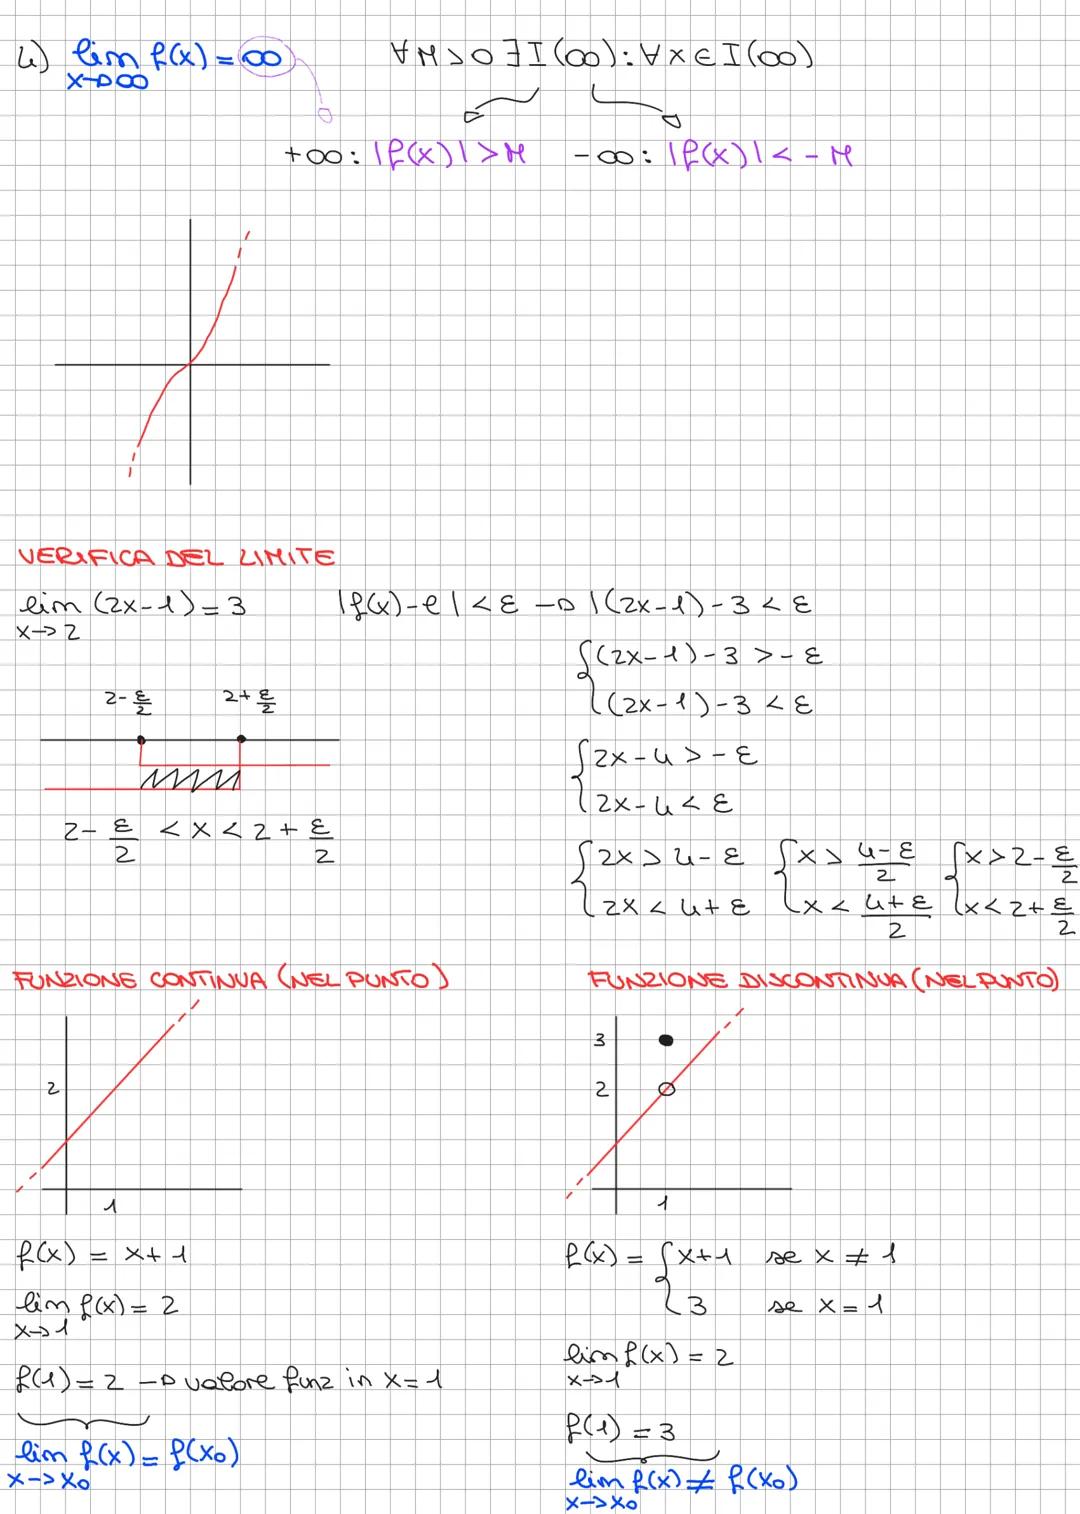 4) lim f(x) = ∞ ∀M>0 ∃I(∞): ∀x∈I(∞)
x→∞
+∞: |f(x)|>M -∞: |f(x)|<-M
VERIFICA DEL LIMITE
lim (2x-1) = 3 |f(x)-l|<ε → |(2x-1)-3<ε
x→2
{(2x-1)-3 >-ε
(2x-1)-3 <ε
2-ε/2 2+ε/2
{2x-4>-ε
2x-4<ε
2-ε/2 <x<2+ε/2
{2x>4-ε {x>(4-ε)/2 {x>2-ε/2
2x<4+ε x<(4+ε)/2 x<2+ε/2
FUNZIONE CONTINUA (NEL PUNTO)
2
1
f(x) = x+1
lim f(x) = 2
x→1
f(1) = 2 → valore funz in x=1
lim f(x) = f(x₀)
x→x₀
FUNZIONE DISCONTINUA (NEL PUNTO)
3
2
1
f(x) = {x+1 se x ≠ 1
3 se x = 1
lim f(x) = 2
x→1
f(1) = 3
lim f(x) ≠ f(x₀)
x→x₀